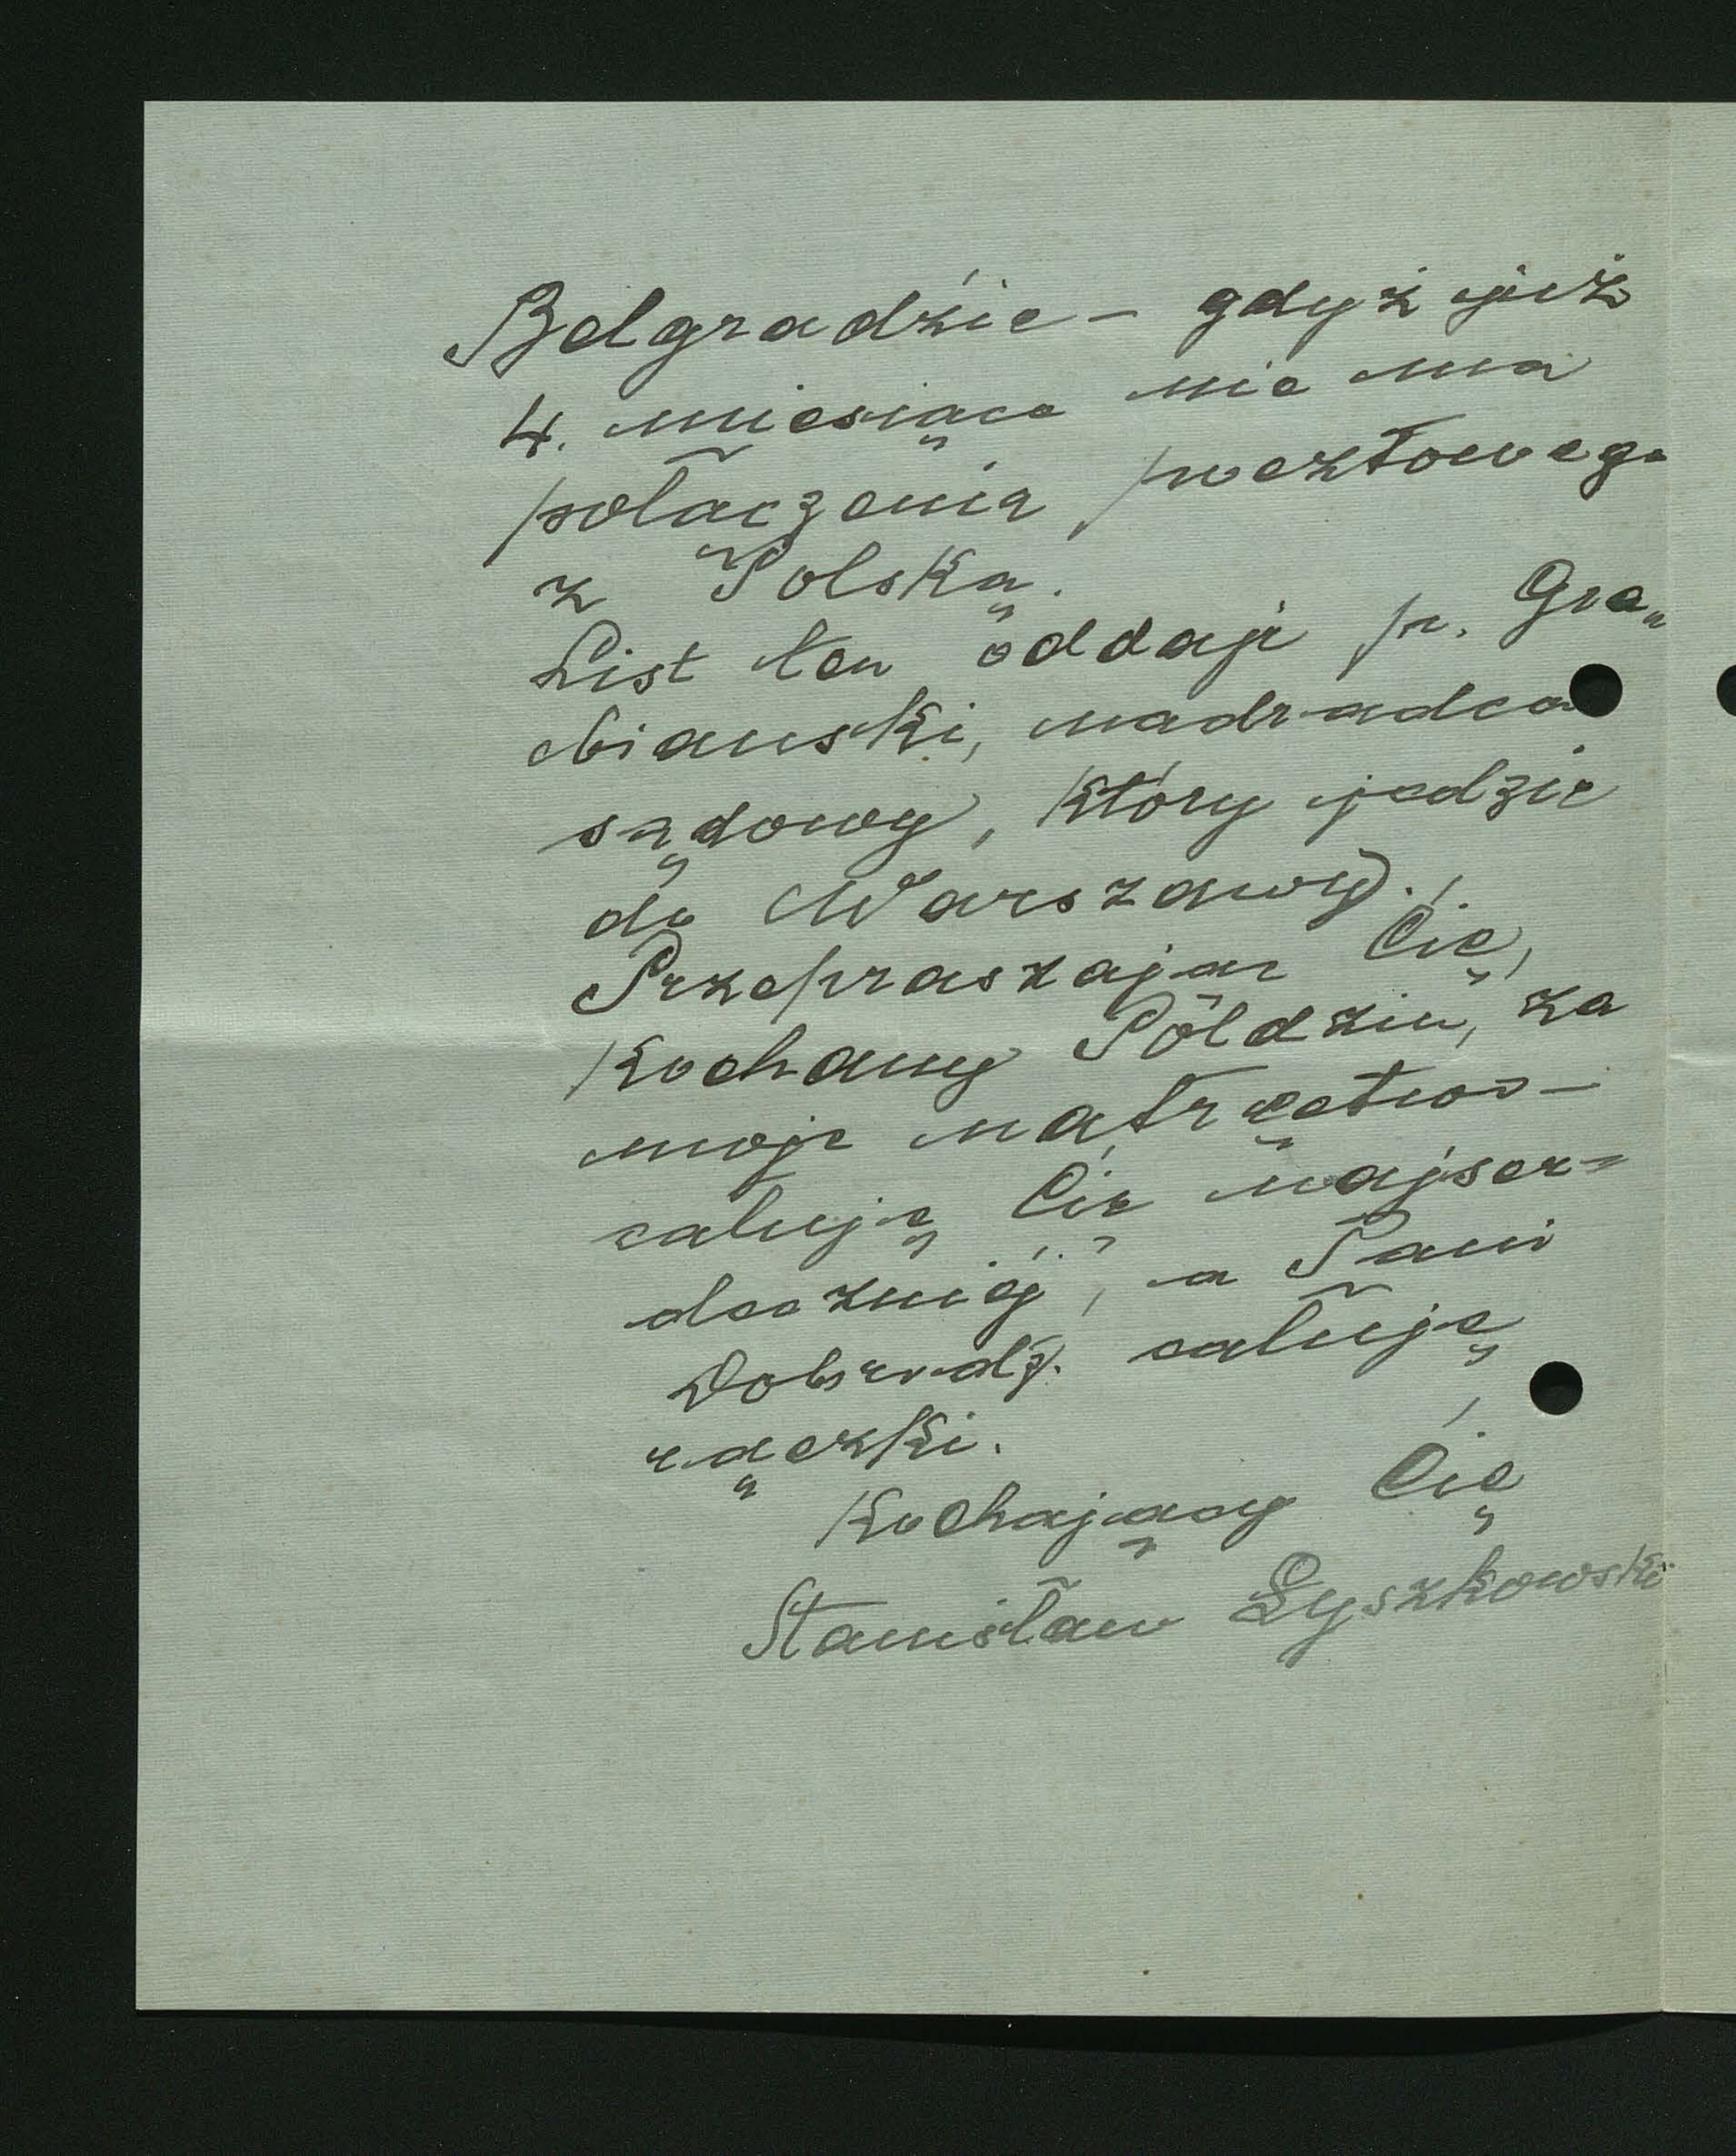 Belgradzie – gdyż już
4. miesiące nie ma
połączenia pocztowego
z Polską.
List ten oddaje p. Gre„
biański, nadradca
sądowy, który jedzie
do Warszawy.
Przepraszając Cię,
Kochany Poldziu, za
moje natręctwo –
całuję Cię najser=
deczniej, a Pani
Dobrodz. całuję
rączki.
Kochający Cię
Stanisław Łyszkowski